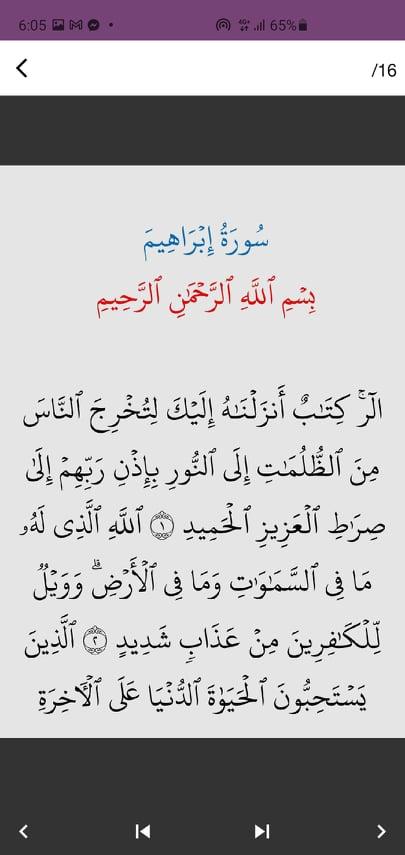 6:05
4G+
65%
/16
سُورَةُ إِبۡرَاهِيمَ
بِسۡمِ ٱللَّهِ ٱلرَّحۡمَٰنِ ٱلرَّحِيمِ
الٓرۚ كِتَٰبٌ أَنزَلۡنَٰهُ إِلَيۡكَ لِتُخۡرِجَ ٱلنَّاسَ
مِنَ ٱلظُّلُمَٰتِ إِلَى ٱلنُّورِ بِإِذۡنِ رَبِّهِمۡ إِلَىٰ
صِرَٰطِ ٱلۡعَزِيزِ ٱلۡحَمِيدِ ١ ٱللَّهِ ٱلَّذِى لَهُۥ
مَا فِى ٱلسَّمَٰوَٰتِ وَمَا فِى ٱلۡأَرۡضِۗ وَوَيۡلٌ
لِّلۡكَٰفِرِينَ مِنۡ عَذَابٖ شَدِيدٍ ٢ ٱلَّذِينَ
يَسۡتَحِبُّونَ ٱلۡحَيَوٰةَ ٱلدُّنۡيَا عَلَى ٱلۡأٓخِرَةِ